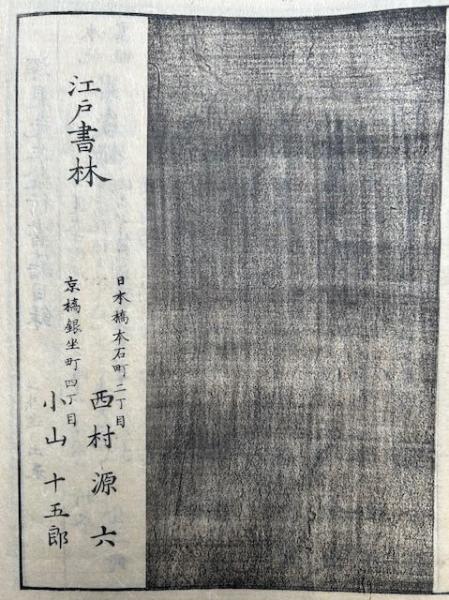 江戸書林
日本橋本石町二丁目
西村源六
京橋銀坐町四丁目
小山十五郎